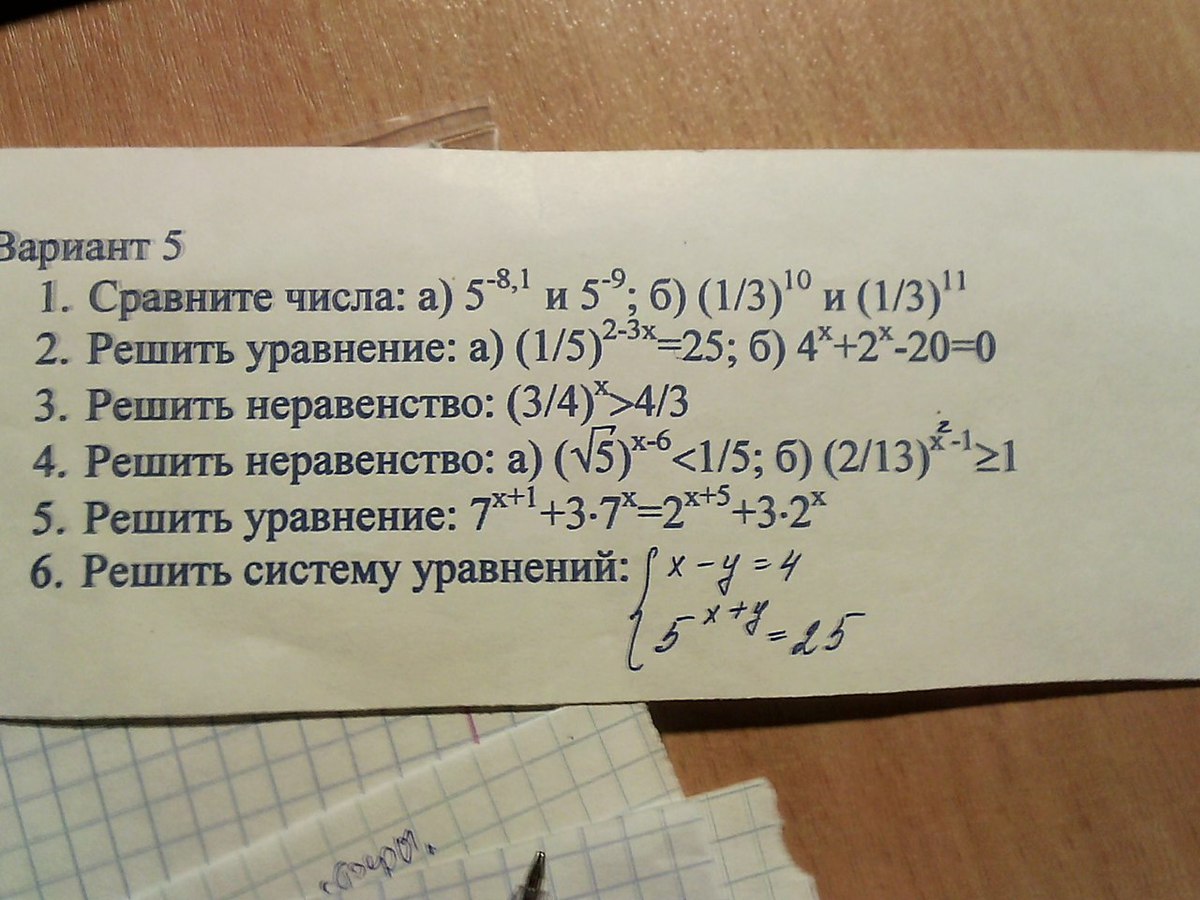 Вариант 5
1. Сравните числа: а) 5^-8,1 и 5^-9; б) (1/3)^10 и (1/3)^11
2. Решить уравнение: а) (1/5)^2-3x=25; б) 4^x+2^x-20=0
3. Решить неравенство: (3/4)^x>4/3
4. Решить неравенство: а) (√5)^x-6<1/5; б) (2/13)^x²-1≥1
5. Решить уравнение: 7^x+1+3·7^x=2^x+5+3·2^x
6. Решить систему уравнений: { x-y=4
5^x+y=25